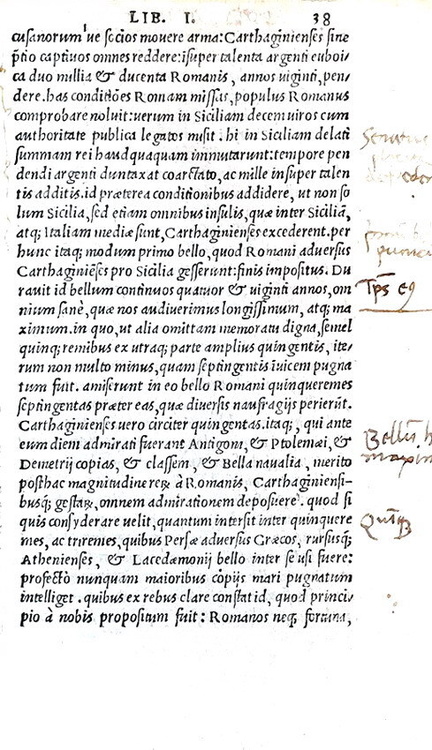 LIB. I. 38
cusanorum'ue socios mouere arma: Carthaginienses sine
p̃tio captiuos omnes reddere: iſuper talenta argenti euboi⸗
ca duo millia & ducenta Romanis, annos uiginti, pen⸗
dere. has conditiões Romam missas, populus Romanus
comprobare noluit: uerum in Siciliam decem uiros cum
authoritate publica legatos misit. hi in Siciliam delati
summam rei haudquaquam immutarunt: tempore pen
dendi argenti duntaxat coarctato, ac mille insuper talen
tis additis. id præterea conditionibus addidere, ut non so
lum Sicilia, sed etiam omnibus insulis, quæ inter Siciliã,
atq; Italiam mediæ sunt, Carthaginienses excederent. per
hunc itaq; modum primo bello, quod Romani aduersus
Carthaginiẽses pro Sicilia gesserunt: finis impositus. Du
rauit id bellum continuos quatuor & uiginti annos, om
nium sanè, quæ nos audiuerimus longissimum, atq; ma
ximum. in quo, ut alia omittam memoratu digna, semel
quinq; remibus ex utraq; parte amplius quingentis, ite⸗
rum non multo minus, quam septingentis iuicem pugna
tum fuit. amiserunt in eo bello Romani quinqueremes
septingentas præter eas, quæ diuersis naufragijs perierũt.
Carthaginienses uero circiter quingentas. itaq;, qui ante
eum dieni admirati fuerant Antigoni, & Ptolemæi, &
Demetrij copias, & classem, & Bella naualia, merito
posthac magnitudinẽ reꝝ à Romanis, Carthaginiensi⸗
busq; gestaꝝ, omnem admirationem deposuere. quod si
quis consyderare uelit, quantum intersit inter quinquere
mes, ac triremes, quibus Persæ aduersus Græcos, rursusq;
Athenienses, & Lacedæmonij bello inter se usi fuere:
profectò nunquam maioribus copijs mari pugnatum
intelliget. quibus ex rebus clare constat id, quod princi⸗
pio à nobis propositum fuit: Romanos neq; fortuna,